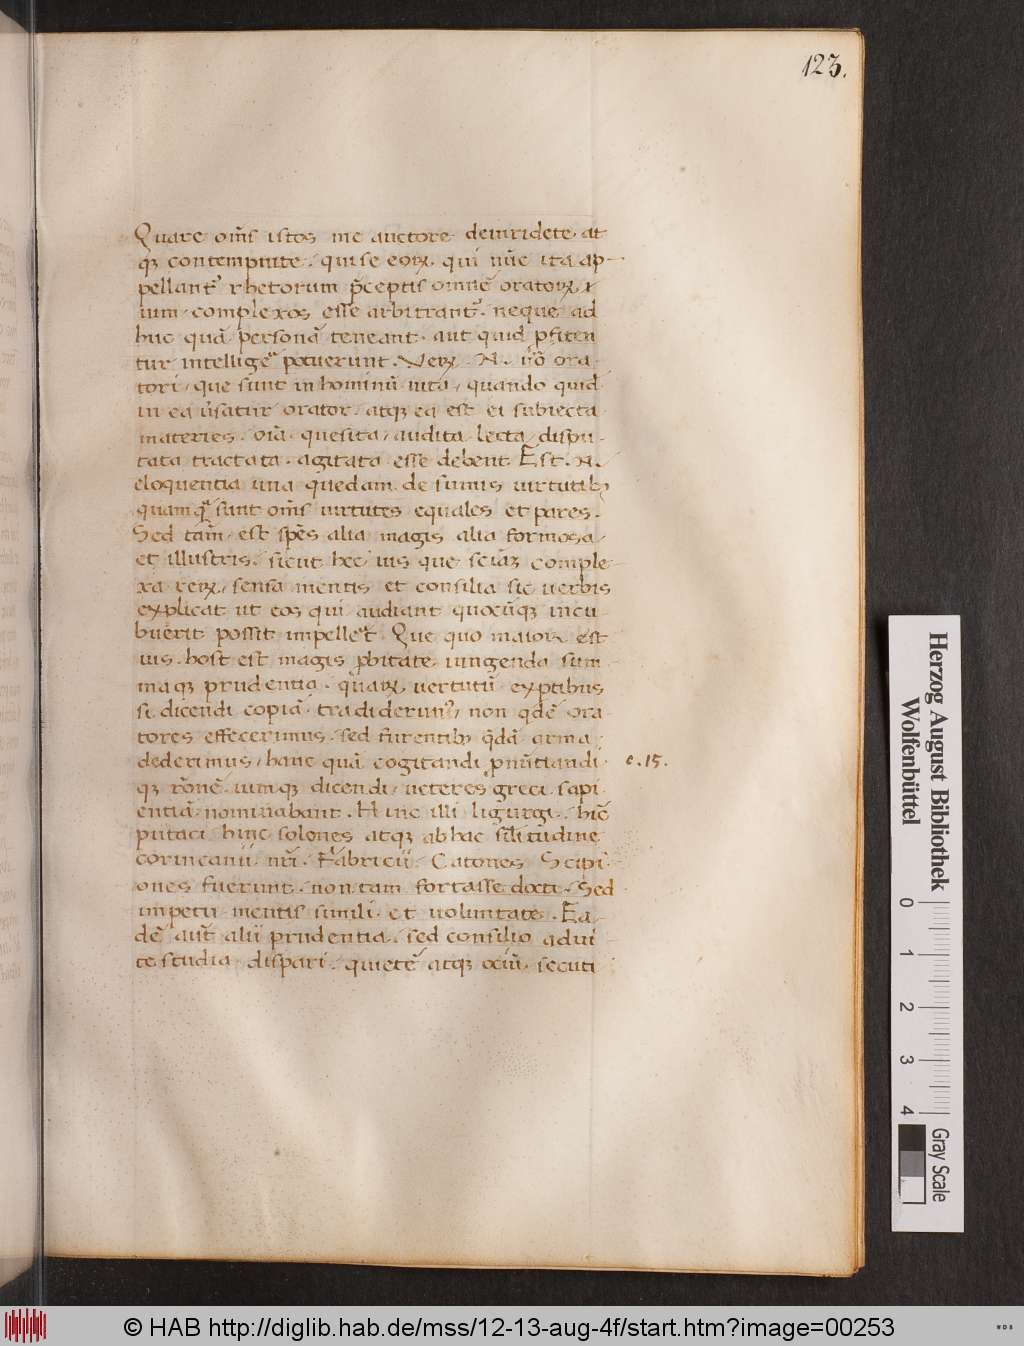 123.
Quare om̄s istos me auctore deinridete at
qꝫ contemnite. qui se eoꝝ. qui nūc ita ap-
pellant᷑ rhetorum p̄ceptis omnē oratoꝝ
uim complexos esse arbitrant᷑. neque ad
huc quā personā teneant. aut quid ꝓfiten
tur intellige᷑ potuerunt. Veꝝ .N. u̅o̅ ora-
tori, que sunt in hominū uita, quando quid
in ea u̅satur orator. atqꝫ ea est ei subiecta
materies. oīā quesita, audita lecta dispu-
tata tractata. agitata esse debent. Est .N.
eloquentia una quedam de sumis uirtutibꝫ
quamqᷓ sunt om̄s uirtutes equales et pares.
Sed tam̄ est spēs alia magis alia formosa
et illustris. sicut hec uis que sciāꝝ comple-
xa reꝝ, sensa mentis et consilia sic uerbis
explicat ut eos qui audiant quocūqꝫ incu
buerit possit impelle᷑t. Que quo maior est
uis. host est magis ꝓbitate iungenda sum
maqꝫ prudentia. quaꝝ uertutū exptibus
si dicendi copiā tradiderim᷒, non qdē ora-
tores effecerimus. sed furentibꝫ qdā arma
dederimus, hanc quā cogitandi pnūtiandi-
c. 15.
qꝫ rōnē. uimqꝫ dicendi, ueteres greci sapi
entiā nominabant. Hinc illi ligurgi. hīc
pittaci hinc solones atqꝫ ab hac sīlitudine
coruncanii nr̄i. Fabricii Catones Scipi-
ones fuerunt. non tam fortasse docti. Sed
impetu mentis simili et uoluntate. Ea-
dē aut̄ alii prudentia. sed consilio ad ui
te studia dispari. quietē atqꝫ ociū. secuti
Herzog August Bibliothek
Wolfenbüttel
0 1 2 3 4
Gray Scale
© HAB http://diglib.hab.de/mss/12-13-aug-4f/start.htm?image=00253